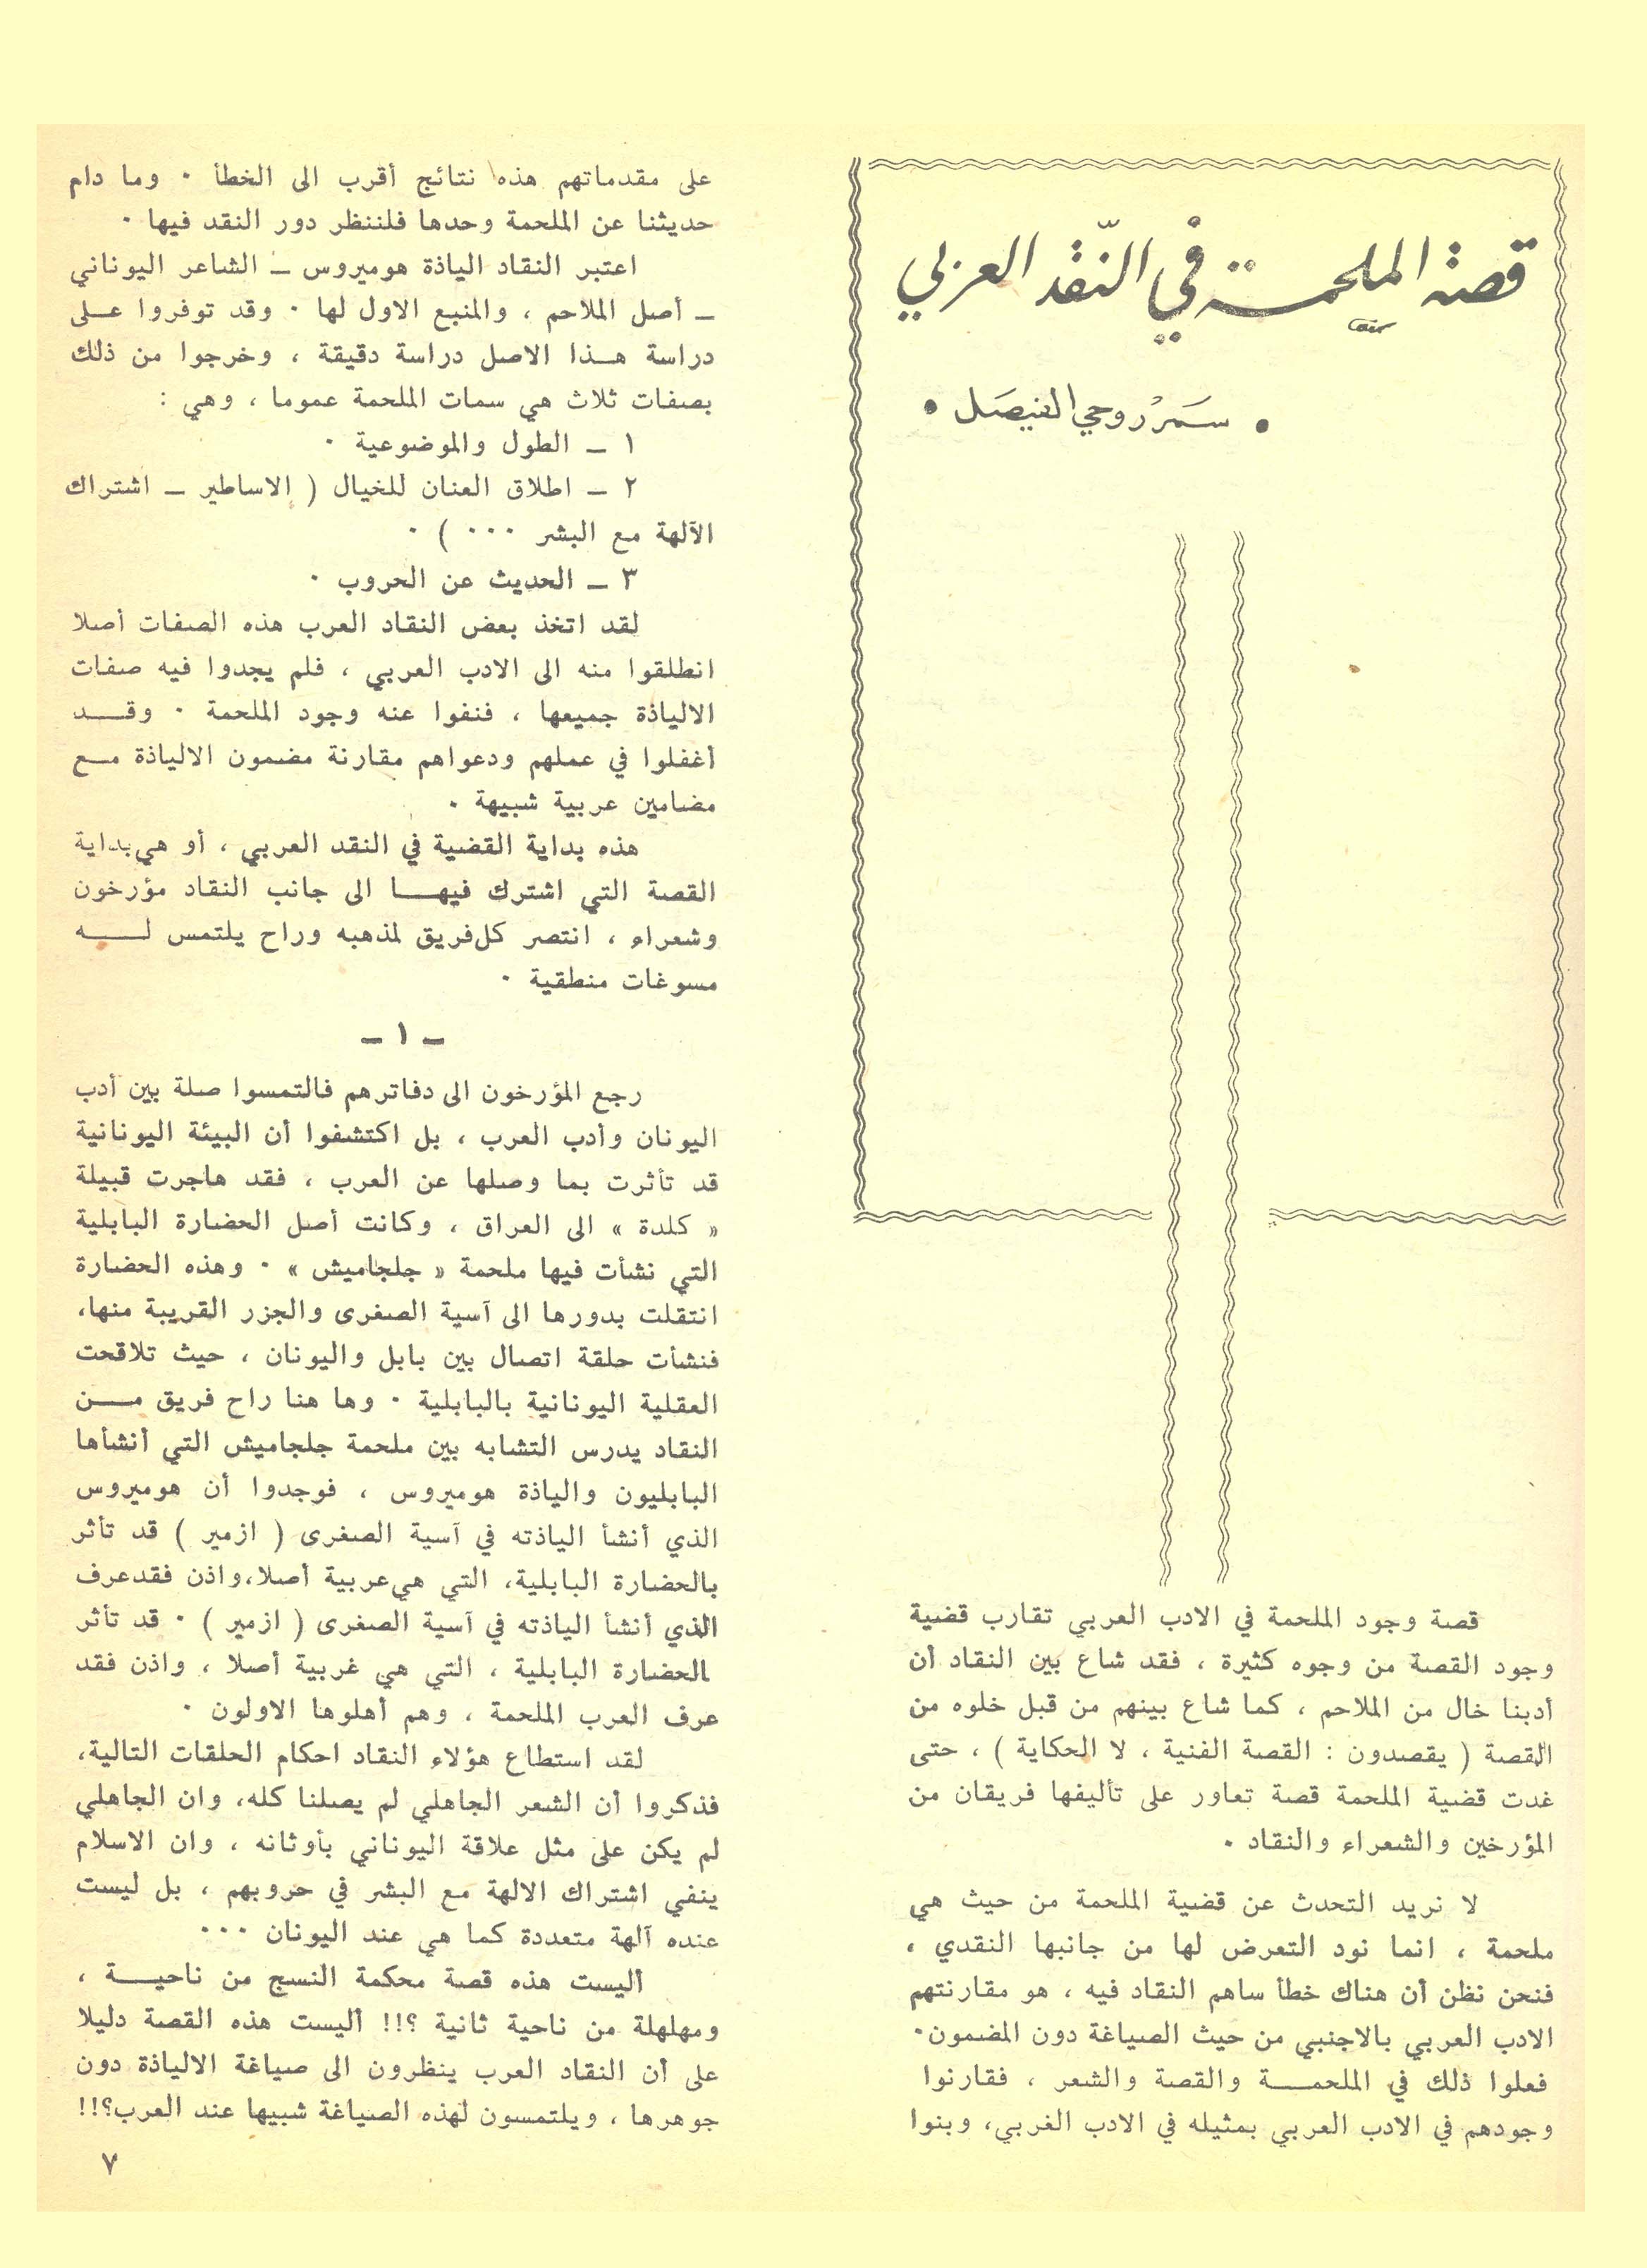 قصة الملحمة في النّقد العربي
• سَمَر رُوحي الفيصَل •
قصة وجود الملحمة في الادب العربي تقارب قضية
وجود القصة من وجوه كثيرة ، فقد شاع بين النقاد أن
أدبنا خال من الملاحم ، كما شاع بينهم من قبل خلوه من
القصة ( يقصدون : القصة الفنية ، لا الحكاية ) ، حتى
غدت قضية الملحمة قصة تعاور على تأليفها فريقان من
المؤرخين والشعراء والنقاد ٠
لا نريد التحدث عن قضية الملحمة من حيث هي
ملحمة ، انما نود التعرض لها من جانبها النقدي ،
فنحن نظن أن هناك خطأ ساهم النقاد فيه ، هو مقارنتهم
الادب العربي بالاجنبي من حيث الصياغة دون المضمون٠
فعلوا ذلك في الملحمـــة والقصة والشعر ، فقارنوا
وجودهم في الادب العربي بمثيله في الادب الغربي، وبنوا
على مقدماتهم هذه نتائج أقرب الى الخطأ ٠ وما دام
حديثنا عن الملحمة وحدها فلننظر دور النقد فيها ٠
اعتبر النقاد الياذة هوميروس ــ الشاعر اليوناني
ــ أصل الملاحم ، والمنبع الاول لها ٠ وقد توفروا عــلى
دراسة هــذا الاصل دراسة دقيقة ، وخرجوا من ذلك
بصفات ثلاث هي سمات الملحمة عموما ، وهي :
١ ــ الطول والموضوعية ٠
٢ ــ اطلاق العنان للخيال ( الاساطير ــ اشتراك
الآلهة مع البشر ٠٠٠ ) ٠
٣ ــ الحديث عن الحروب ٠
لقد اتخذ بعض النقاد العرب هذه الصفات أصلا
انطلقوا منه الى الادب العربي ، فلم يجدوا فيه صفات
الالياذة جميعها ، فنفوا عنه وجود الملحمة ٠ وقــد
أغفلوا في عملهم ودعواهم مقارنة مضمون الالياذة مــع
مضامين عربية شبيهة ٠
هذه بداية القضية في النقد العربي ، أو هي بداية
القصة التي اشترك فيهــا الى جانب النقاد مؤرخون
وشعراء ، انتصر كل فريق لمذهبه وراح يلتمس لـــه
مسوغات منطقية ٠
ــ ١ ــ
رجع المؤرخون الى دفاترهم فالتمسوا صلة بين أدب
اليونان وأدب العرب ، بل اكتشفوا أن البيئة اليونانية
قد تأثرت بما وصلها عن العرب ، فقد هاجرت قبيلة
« كلدة » الى العراق ، وكانت أصل الحضارة البابلية
التي نشأت فيها ملحمة « جلجاميش » ٠ وهذه الحضارة
انتقلت بدورها الى آسية الصغرى والجزر القريبة منها،
فنشأت حلقة اتصال بين بابل واليونان ، حيث تلاقحت
العقلية اليونانية بالبابلية ٠ وها هنا راح فريق مــن
النقاد يدرس التشابه بين ملحمة جلجاميش التي أنشأها
البابليون والياذة هوميروس ، فوجدوا أن هوميروس
الذي أنشأ الياذته في آسية الصغرى ( ازمير ) قد تأثر
بالحضارة البابلية، التي هي عربية أصلا، واذن فقد عرف
الذي أنشأ الياذته في آسية الصغرى ( ازمير ) ٠ قد تأثر
بالحضارة البابلية ، التي هي غربية أصلا ، واذن فقد
عرف العرب الملحمة ، وهم أهلوها الاولون ٠
لقد استطاع هؤلاء النقاد احكام الحلقات التالية،
فذكروا أن الشعر الجاهلي لم يصلنا كله، وان الجاهلي
لم يكن على مثل علاقة اليوناني بأوثانه ، وان الاسلام
ينفي اشتراك الالهة مع البشر في حروبهم ، بل ليست
عنده آلهة متعددة كما هي عند اليونان ٠٠٠
أليست هذه قصة محكمة النسج من ناحيـــة ،
ومهلهلة من ناحية ثانية ؟!! أليست هذه القصة دليلا
على أن النقاد العرب ينظرون الى صياغة الالياذة دون
جوهرها ، ويلتمسون لهذه الصياغة شبيها عند العرب؟!!
٧